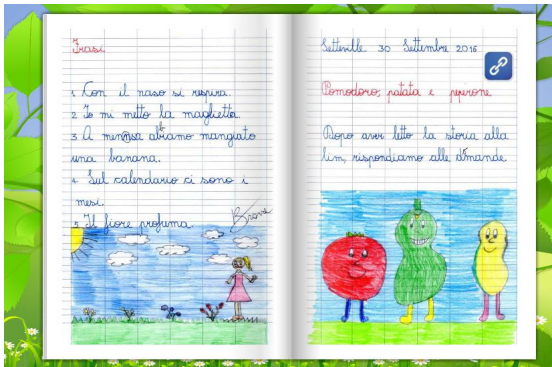 Frasi
1 Con il naso si respira.
2 Io mi metto la maglietta.
3 A mensa abbiamo mangiato
una banana.
4. Sul calendario ci sono i
mesi.
5 Il fiore profuma.
Brava
Setteville 30 Settembre 2016
Pomodoro, patata e peperone
Dopo aver letto la storia alla
lim, rispondiamo alle domande.